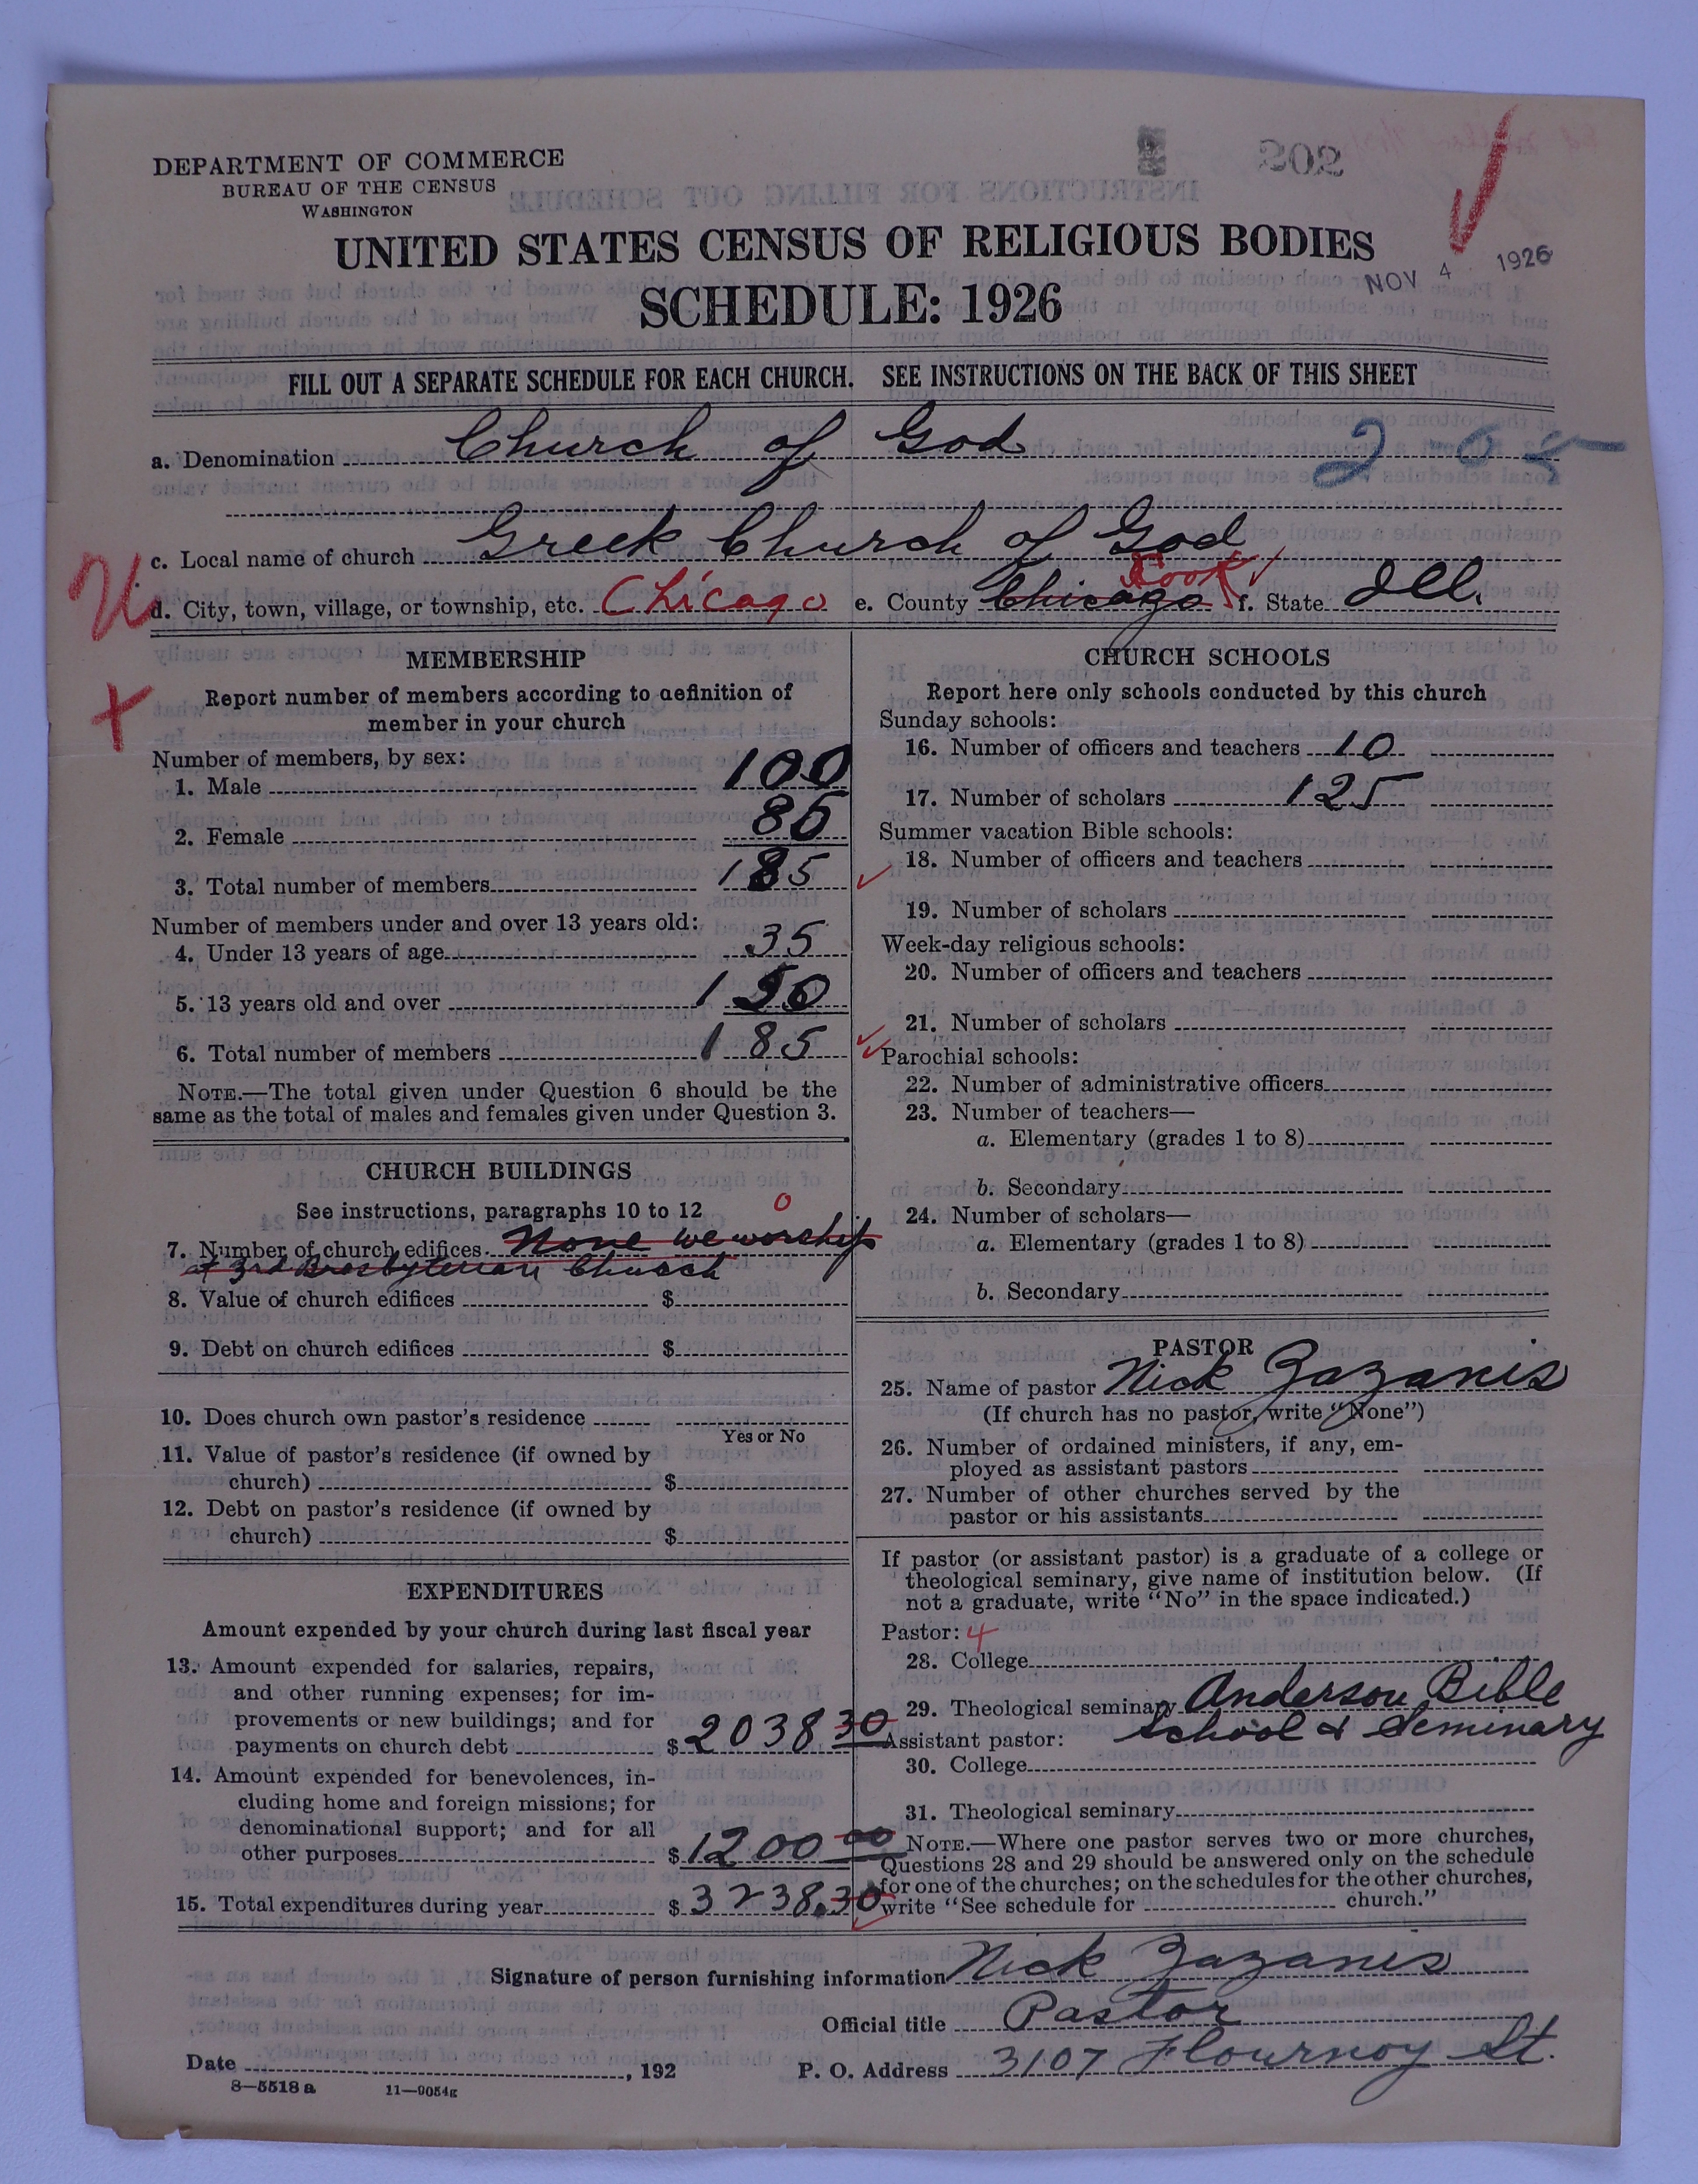 DEPARTMENT OF COMMERCE
BUREAU OF THE CENSUS
WASHINGTON
202
UNITED STATES CENSUS OF RELIGIOUS BODIES
NOV 4 1926
SCHEDULE: 1926
FILL OUT A SEPARATE SCHEDULE FOR EACH CHURCH. SEE INSTRUCTIONS ON THE BACK OF THIS SHEET
a. Denomination Church of God 2-05
c. Local name of church Greek Church of God
d. City, town, village, or township, etc. Chicago e. County Chicago Cook f. State Ill.
MEMBERSHIP
Report number of members according to definition of
member in your church
Number of members, by sex:
1. Male 100
2. Female 85
3. Total number of members 185
Number of members under and over 13 years old:
4. Under 13 years of age 35
5. 13 years old and over 150
6. Total number of members 185
NOTE.—The total given under Question 6 should be the
same as the total of males and females given under Question 3.
CHURCH BUILDINGS
See instructions, paragraphs 10 to 12 0
7. Number of church edifices None we worship
at 3rd Presbyterian Church
8. Value of church edifices $
9. Debt on church edifices $
10. Does church own pastor's residence
Yes or No
11. Value of pastor's residence (if owned by
church) $
12. Debt on pastor's residence (if owned by
church) $
EXPENDITURES
Amount expended by your church during last fiscal year
13. Amount expended for salaries, repairs,
and other running expenses; for im-
provements or new buildings; and for
payments on church debt $ 2038 30
14. Amount expended for benevolences, in-
cluding home and foreign missions; for
denominational support; and for all
other purposes $ 1200 00
15. Total expenditures during year $ 3238.30
CHURCH SCHOOLS
Report here only schools conducted by this church
Sunday schools:
16. Number of officers and teachers 10
17. Number of scholars 125
Summer vacation Bible schools:
18. Number of officers and teachers
19. Number of scholars
Week-day religious schools:
20. Number of officers and teachers
21. Number of scholars
Parochial schools:
22. Number of administrative officers
23. Number of teachers—
a. Elementary (grades 1 to 8)
b. Secondary
24. Number of scholars—
a. Elementary (grades 1 to 8)
b. Secondary
PASTOR
25. Name of pastor Nick Zazanis
(If church has no pastor, write "None")
26. Number of ordained ministers, if any, em-
ployed as assistant pastors
27. Number of other churches served by the
pastor or his assistants
If pastor (or assistant pastor) is a graduate of a college or
theological seminary, give name of institution below. (If
not a graduate, write "No" in the space indicated.)
Pastor: 4
28. College
29. Theological seminary Anderson Bible
School & Seminary
Assistant pastor:
30. College
31. Theological seminary
NOTE.—Where one pastor serves two or more churches,
Questions 28 and 29 should be answered only on the schedule
for one of the churches; on the schedules for the other churches,
write "See schedule for church."
Signature of person furnishing information Nick Zazanis
Official title Pastor
Date , 192 P. O. Address 3107 Flournoy St.
8—5518a 11—9054g